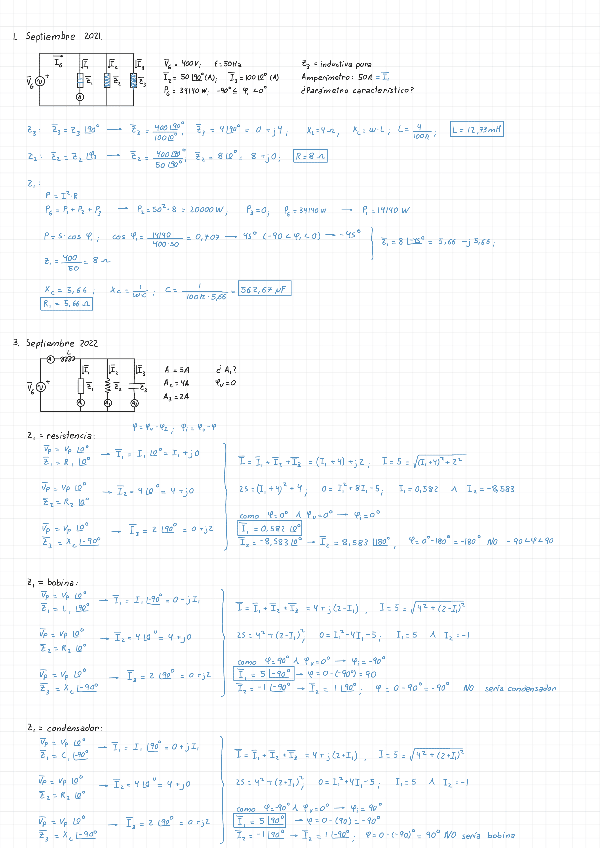 1. Septiembre 2021.
I̅G I̅1 I̅2 I̅3
V̅G Z̅1 Z̅2 Z̅3
V̅G = 400 V; f = 50Hz
I̅2 = 50 |90° (A); I̅3 = 100 |0° (A)
PG = 34140 W; -90° ≤ φ1 ≤ 0°
Z3 = inductiva pura
Amperímetro: 50A = I̅1
¿Parámetro característico?
Z3: Z̅3 = Z3 |90° → Z̅3 = 400 |90° / 100 |0°; Z̅3 = 4 |90° = 0 + j4; XL = 4 Ω; XL = ω·L; L = 4 / 100π; L = 12,73 mH
Z2: Z̅2 = Z2 |0° → Z̅2 = 400 |90° / 50 |90°; Z̅2 = 8 |0° = 8 + j0; R = 8 Ω
Z1:
P = I²·R
PG = P1 + P2 + P3 → P2 = 50²·8 = 20000 W; P3 = 0; PG = 34140 W → P1 = 14140 W
P = S·cos φ1; cos φ1 = 14140 / 400·50 = 0,707 → 45° (-90 < φ1 < 0) → -45°
Z1 = 400 / 50 = 8 Ω
Z̅1 = 8 |-45° = 5,66 - j 5,66;
XC = 5,66; XC = 1 / ωC; C = 1 / 100π·5,66 = 562,67 μF
R1 = 5,66 Ω
3. Septiembre 2022
V̅G I̅1 I̅2 I̅3
Z̅1 Z̅2 Z̅3
A = 5A ¿A1?
A2 = 4A φV = 0
A3 = 2A
φ = φV - φI; φI = φV - φ
Z1 = resistencia:
V̅P = VP |0°
Z̅1 = R1 |0° → I̅1 = I1 |0° = I1 + j0
V̅P = VP |0°
Z̅2 = R2 |0° → I̅2 = 4 |0° = 4 + j0
V̅P = VP |0°
Z̅3 = XC |-90° → I̅3 = 2 |90° = 0 + j2
I̅ = I̅1 + I̅2 + I̅3 = (I1 + 4) + j2; I = 5 = √(I1+4)² + 2²
25 = (I1 + 4)² + 4; 0 = I1² + 8I1 - 5; I1 = 0,582 ∧ I1 = -8,583
como φ = 0° ∧ φV = 0° → φI = 0°
I̅1 = 0,582 |0°
I̅1 = -8,583 |0° → I̅1 = 8,583 |180°; φ = 0° - 180° = -180° NO -90 < φ < 90
Z1 = bobina:
V̅P = VP |0°
Z̅1 = L1 |90° → I̅1 = I1 |-90° = 0 - jI1
V̅P = VP |0°
Z̅2 = R2 |0° → I̅2 = 4 |0° = 4 + j0
V̅P = VP |0°
Z̅3 = XC |-90° → I̅3 = 2 |90° = 0 + j2
I̅ = I̅1 + I̅2 + I̅3 = 4 + j(2 - I1); I = 5 = √4² + (2-I1)²
25 = 4² + (2-I1)²; 0 = I1² - 4I1 - 5; I1 = 5 ∧ I1 = -1
como φ = 90° ∧ φV = 0° → φI = -90°
I̅1 = 5 |-90° → φ = 0 - (-90°) = 90
I̅1 = -1 |-90° → I̅1 = 1 |90°; φ = 0 - 90° = -90° NO sería condensador
Z1 = condensador:
V̅P = VP |0°
Z̅1 = C1 |-90° → I̅1 = I1 |90° = 0 + jI1
V̅P = VP |0°
Z̅2 = R2 |0° → I̅2 = 4 |0° = 4 + j0
V̅P = VP |0°
Z̅3 = XC |-90° → I̅3 = 2 |90° = 0 + j2
I̅ = I̅1 + I̅2 + I̅3 = 4 + j(2 + I1); I = 5 = √4² + (2+I1)²
25 = 4² + (2+I1)²; 0 = I1² + 4I1 - 5; I1 = 5 ∧ I1 = -1
como φ = -90° ∧ φV = 0° → φI = 90°
I̅1 = 5 |90° → φ = 0 - (90) = -90°
I̅1 = -1 |90° → I̅1 = 1 |-90°; φ = 0 - (-90)° = 90° NO sería bobina